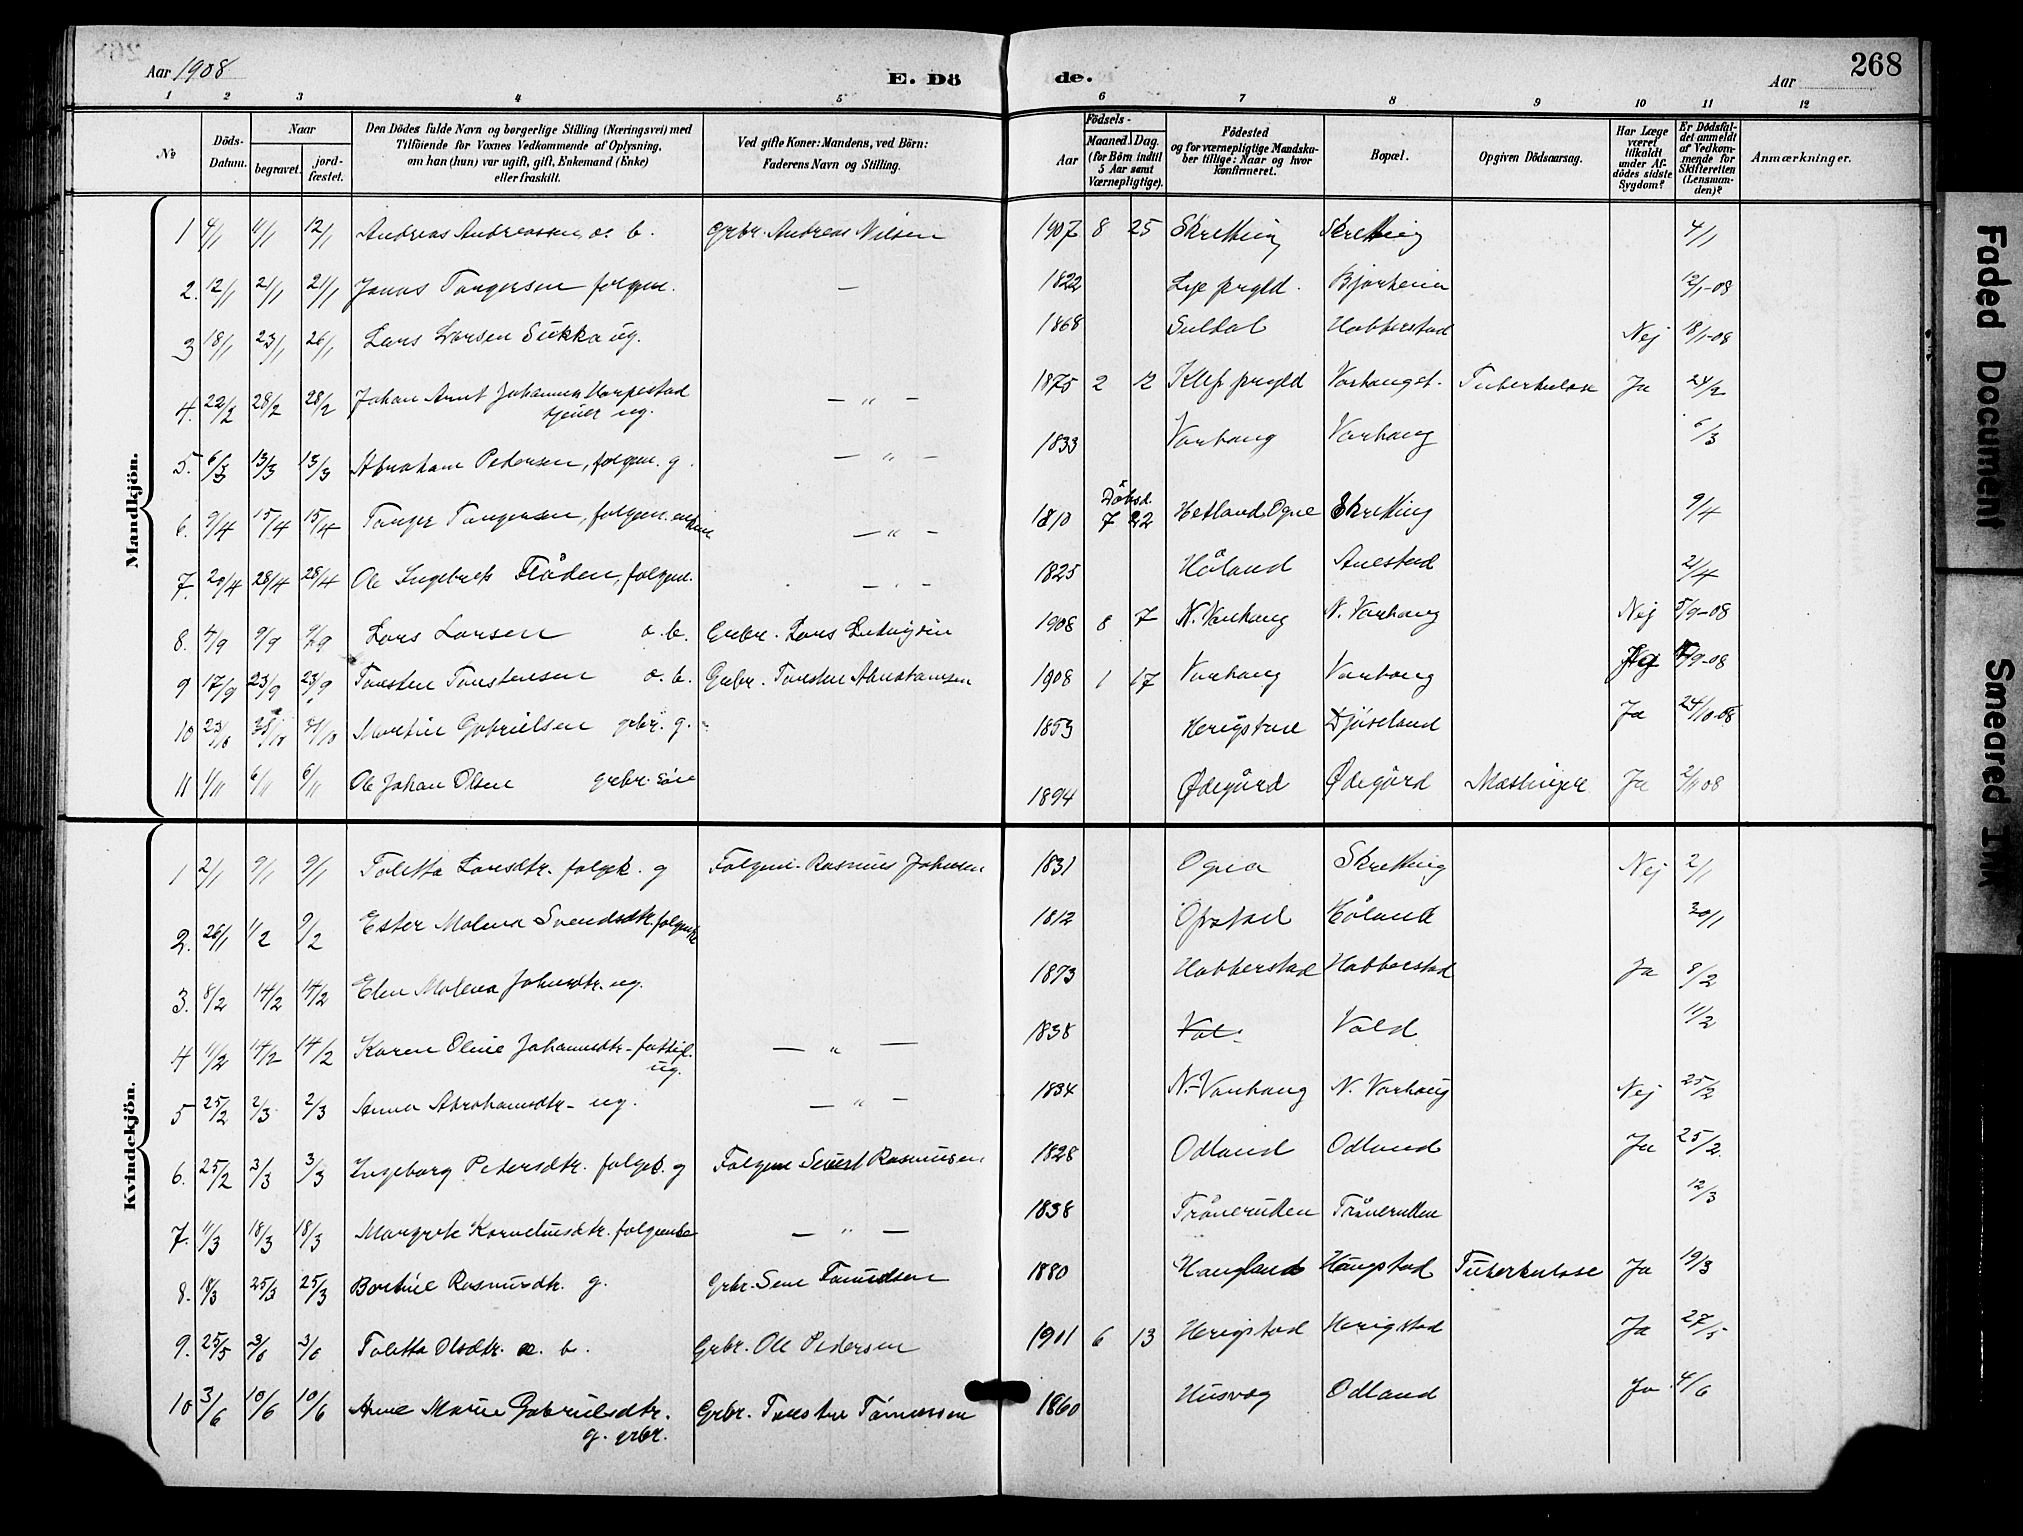 Aar 1908
E. Dö
de.
Aar
268
1 2 3 4 5 6 7 8 9 10 11 12
№
Döds-
Datum.
Naar
begravet.
jord-
fæstet.
Den Dödes fulde Navn og borgerlige Stilling (Næringsvei) med
Tilföiende for Voxnes Vedkommende af Oplysning,
om han (hun) var ugift, gift, Enkemand (Enke)
eller fraskilt.
Ved gifte Koner: Mandens, ved Börn:
Faderens Navn og Stilling.
Födsels-
Aar
Maaned. Dag.
(for Börn indtil
5 Aar samt
Værnepligtige).
Födested
og for værnepligtige Mandska-
ber tillige: Naar og hvor
konfirmeret.
Bopæl.
Opgiven Dödsaarsag.
Har Læge
været
tilkaldt
under Af-
dödes sidste
Sygdom?
Er Dödsfal-
det anmeldt
af Vedkom-
mende for
Skifteretten
(Lensman-
den)?
Anmærkninger.
Mandkjön.
1 4/1 11/1 12/1 Andreas Andreassen, æ. b. Grbr. Andreas Nilsen 1907 8 25 Skretting Skretting 4/1
2. 12/1 21/1 21/1 Jonas Tangersen folgem. — 1822 Lye prgld. 12/1-08
3 18/1 23/1 26/1 Lars Larsen Sukka ug. 1868 Suldal Hobberstad Nej 18/1-08
4. 22/2 28/2 28/2 Johan Arnt Johannes Horpestad
tjener ug. — „ — 1875 2 12 Klep prgld Varhaugst. Tuberkulose Ja 24/2
5. 6/3 13/3 13/3 Abraham Pedersen, folgem. g. — „ — 1833 Varhaug Varhaug 6/3
6. 9/4 15/4 15/4 Tanger Tangersen, folgem. enkem — „ — 1810 Döbsd. 7 22 Hetland Ogne Skretting 9/4
7. 20/4 28/4 28/4 Ole Ingebrets Flåden, folgem. — „ — 1825 Håland Auestad 21/4
8. 4/9 9/9 9/9 Lars Larsen æ. b. Grbr. Lars Ludvigsen 1908 8 7 N. Varhaug N. Varhaug Nej 5/9-08
9 17/9 23/9 23/9 Torsten Torstensen æ. b. Grbr. Torsten Abrahamsen 1908 1 17 Varhaug Varhaug 9-08
10 23/10 31/10 Martin Gabrielsen grbr. g. 1853 Herigstad Djuseland Ja 24/10-08
11 1/11 6/11 6/11 Ole Johan Olsen grbr. søn 1894 Ødegård Ødegård Mæslinger Ja 2/11 08
Kvindekjön.
1 2/1 9/1 9/1 Toletta Larsdtr. folgek. g Folgem. Rasmus Johnsen 1831 Ogna Skretting Nej 2/1
2. 26/1 1/2 9/2 Ester Malena Svendsdtr, folgenke 1812 Opstad Høland 30/1
3. 8/2 14/2 14/2 Elen Malena Johnsdtr. ug. 1873 Hobberstad Hobberstad Ja 8/2
4 11/2 14/2 14/2 Karen Oline Johannesdtr - fattigl.
ug. — „ — 1838 Vold 11/2
5 25/2 2/3 2/3 Anna Abrahamsdtr - ug. — „ — 1834 N-Varhaug N. Varhaug Nej 25/2
6. 25/2 3/3 3/3 Ingeborg Pedersdtr. folgek. g Folgem Sivert Rasmusen 1828 Odland Odland Ja 25/2
7. 11/3 18/3 18/3 Margrete Korneliusdtr. folgenke — „ — 1838 Tråneruden Tråneruden 12/3
8. 18/3 25/3 25/3 Bertine Rasmusdtr. g. Grbr. 1880 Haugland Haugstad Tuberkulose Ja 19/3
9. 25/5 3/6 3/6 Toletta Olsdtr. æ. b. Grbr. Ole Pedersen 1901 6 13 Herigstad Herigstad Ja 27/5
10 3/6 10/6 10/6 Anne Marie Gabrielsdtr.
g. grbr. Grbr. Torsten Tønnessen 1860 Husvåg Odland Ja 4/6
Faded Document
Smeared Ink